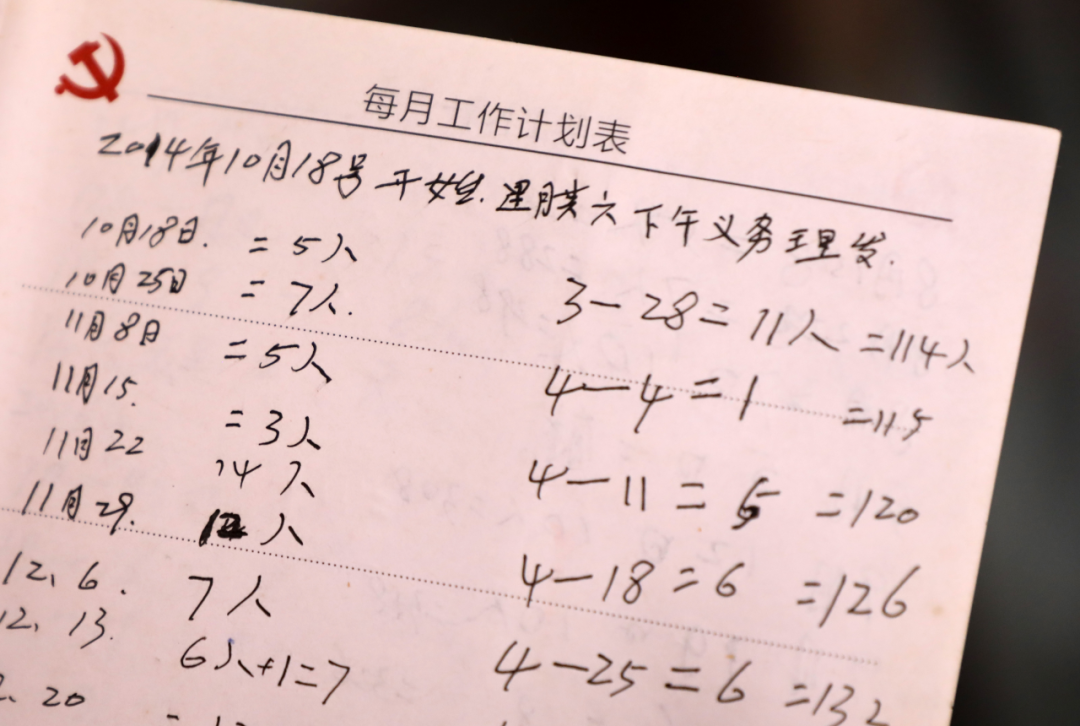 每月工作计划表
2014年10月18号开始.星期六下午义务理发.
10月18日. = 5人
10月25日 = 7人.
11月8日 = 5人
11月15. = 3人
11月22 14人
11月29. 12人
12、6. 7人
12、13. 6人+1=7
20
3-28= 11人 =114人
4-4=1 =115
4-11= 5 =120
4-18=6 =126
4-25=6 =132